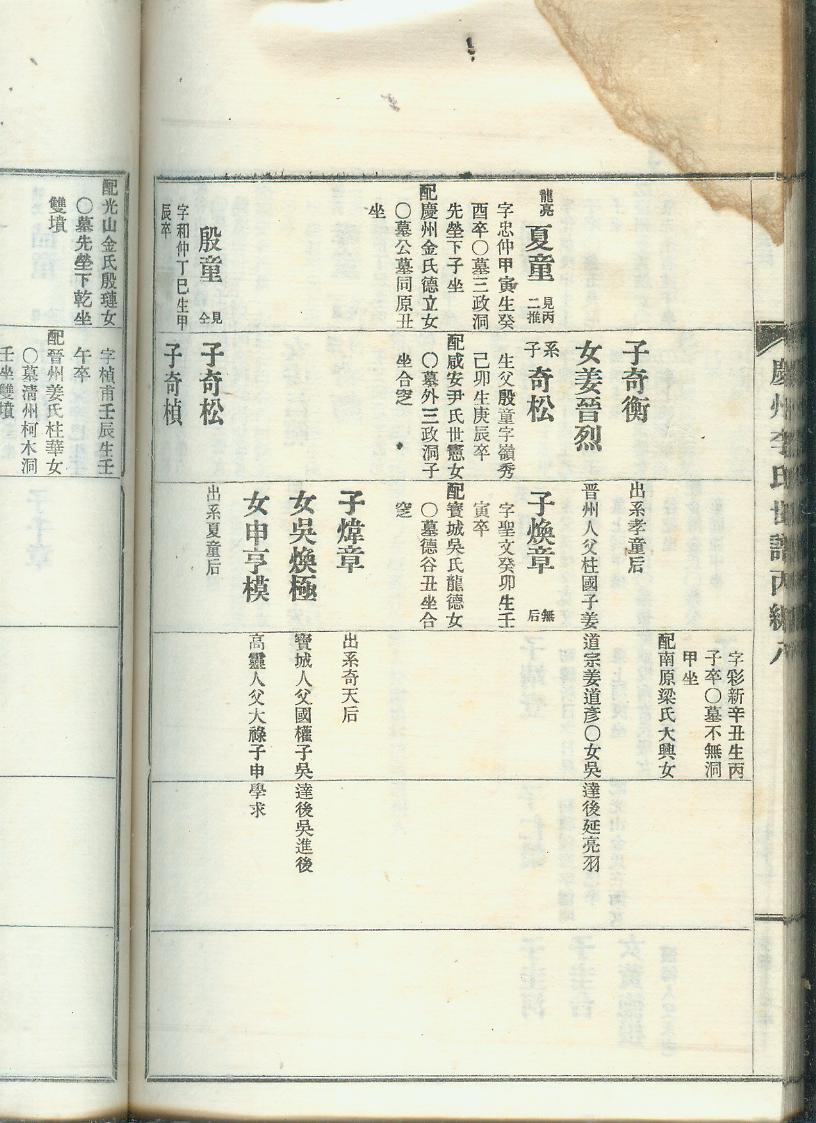 慶州李氏世譜丙編六
龍亮
夏童
見丙
二推
字忠仲甲寅生癸
酉卒〇墓三政洞
先塋下子坐
配慶州金氏德立女
〇墓公墓同原丑
坐
殷童
見
仝
字和仲丁巳生甲
辰卒
子奇衡
女姜晉烈
系
子
奇松
生父殷童字嶺秀
己卯生庚辰卒
配咸安尹氏世憲女
〇墓外三政洞子
坐合窆
子奇松
子奇楨
出系孝童后
晉州人父柱國子姜
子煥章
無
后
字聖文癸卯生壬
寅卒
配寶城吳氏龍德女
〇墓德谷丑坐合
窆
子煒章
女吳煥極
女申亨模
出系夏童后
字彩新辛丑生丙
子卒〇墓不無洞
甲坐
配南原梁氏大興女
道宗姜道彥〇女吳
出系奇天后
寶城人父國權子吳
高靈人父大祿子申
達後延亮羽
達後吳進後
學求
配光山金氏殷璉女
〇墓先塋下乾坐
雙墳
字楨甫壬辰生壬
午卒
配晉州姜氏柱華女
〇墓清州柯木洞
壬坐雙墳